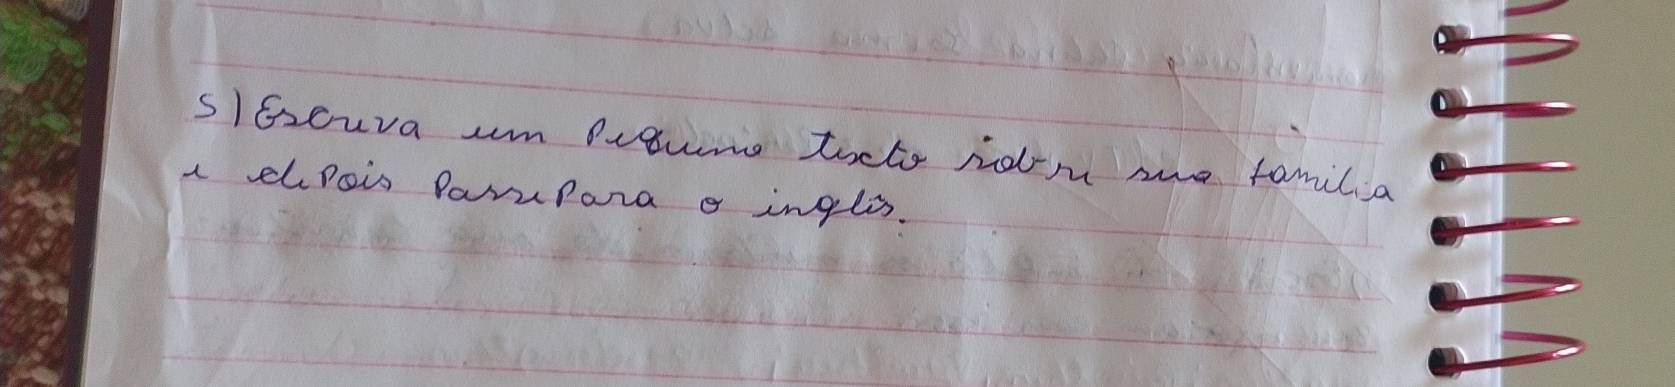 5) Escreva um pequeno texto sobre sua família
e depois passe para o inglês.